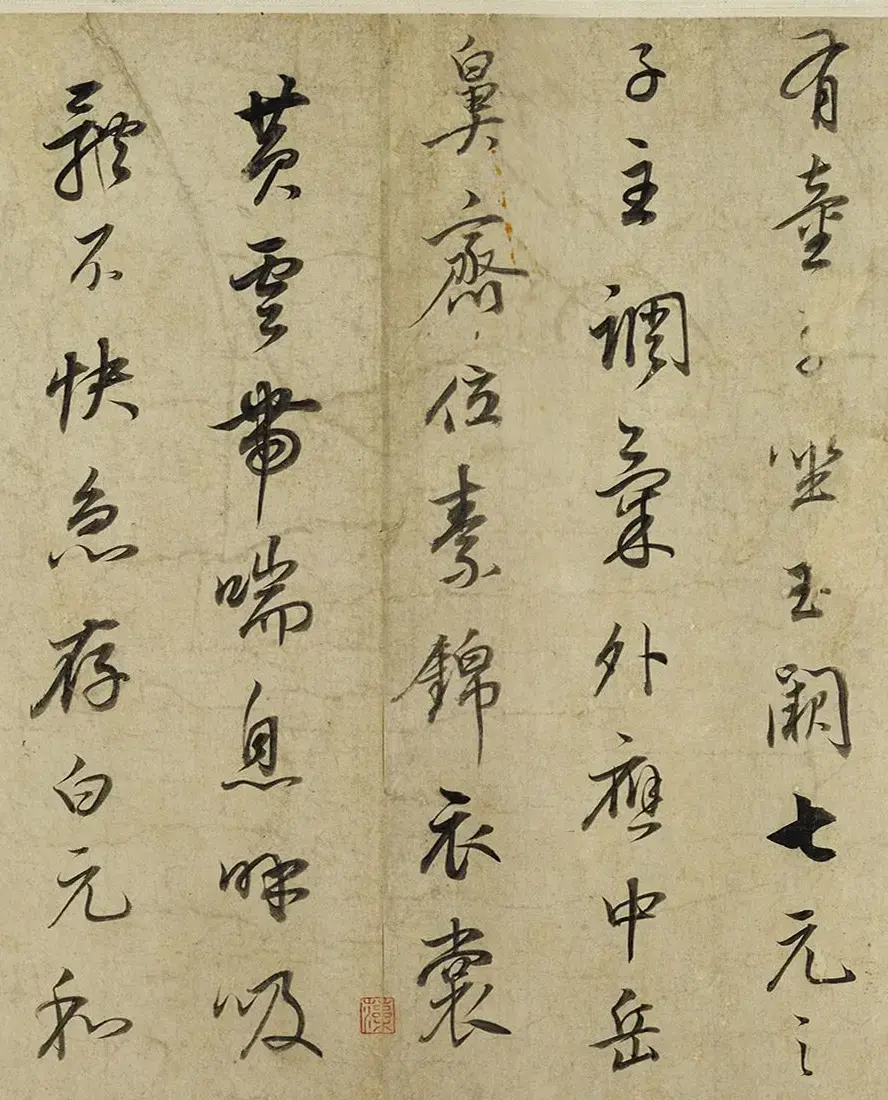 有童子坐玉闕七元之
子主調氣外應中岳
鼻齋位素錦衣裳
黃雲帶喘息呼吸
體不快急存白元和